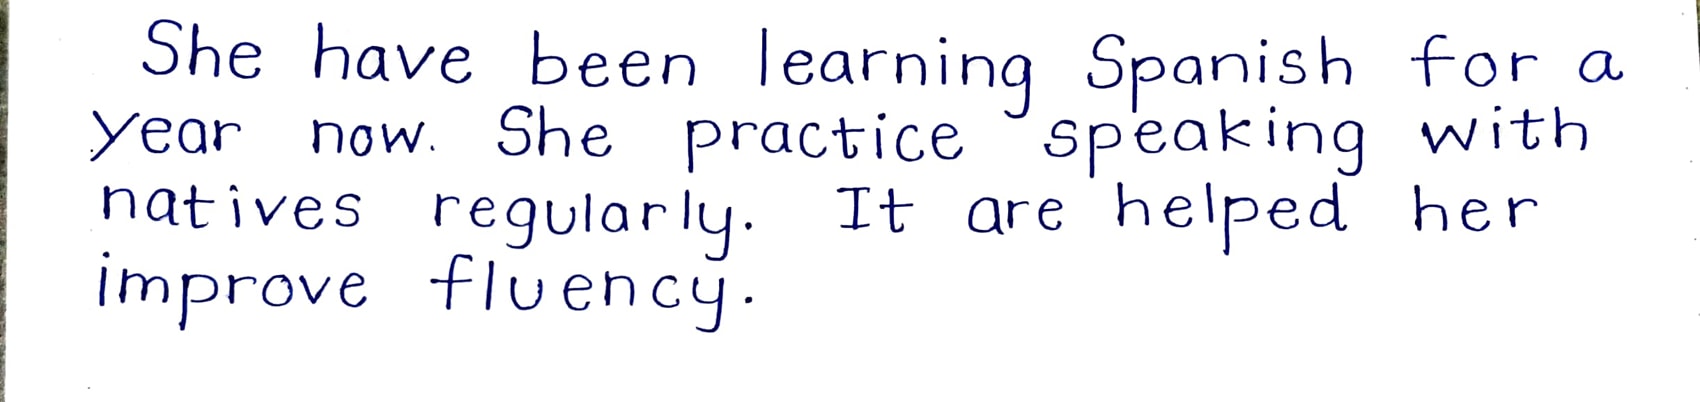 She have been learning Spanish for a
year now. She practice speaking with
natives regularly. It are helped her
improve fluency.